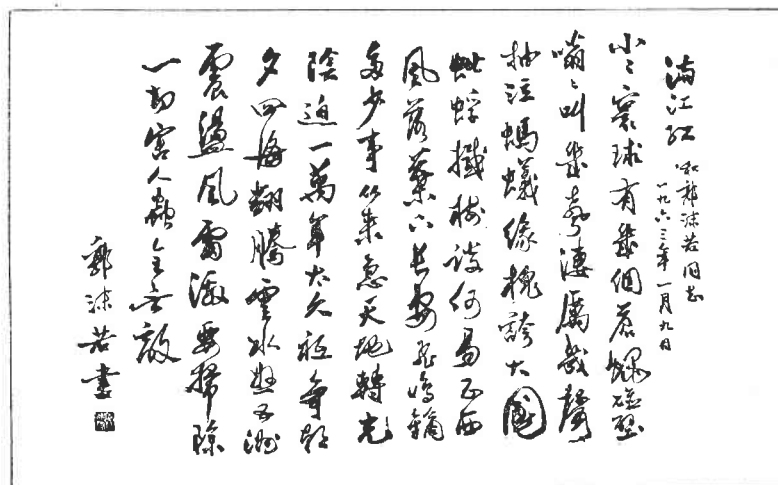 滿江红
和郭沫若同志
一九六三年一月九日
小〻寰球有幾個蒼蠅碰壁
嗡〻叫幾聲凄厲幾聲
抽泣螞蟻緣槐誇大國
蚍蜉撼樹談何易正西
風落葉下長安飛鳴鏑
多少事從來急天地轉光
陰迫一萬年太久祗爭朝
夕四海翻騰雲水怒五洲
震盪風雷激要掃除
一切害人蟲全無敵
郭沫若書